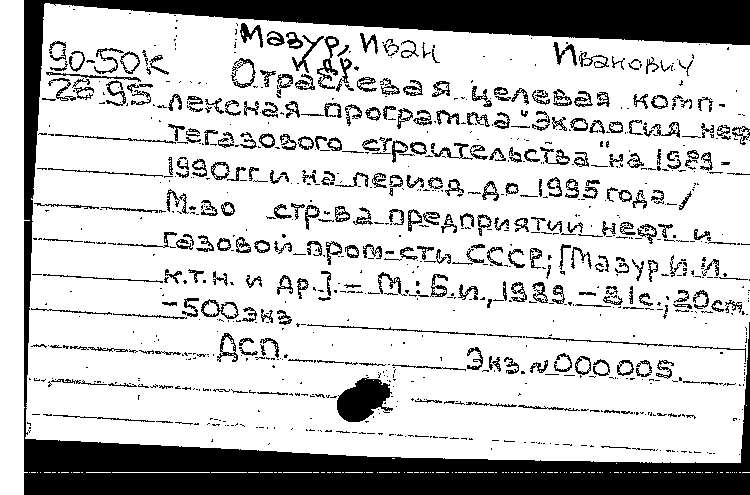 Мазур, Иван Иванович
и др.
90-50К
26 95
Отраслевая целевая комп-
лексная программа "Экология неф
тегазового строительства" на 1989-
1990 гг и на период до 1995 года /
М-во стр-ва предприятий нефт. и
газовой пром-сти СССР; [Мазур И.И.
к.т.н. и др.]. - М.: Б.и., 1989. - 81с.; 20см.
-500экз.
ДСП.
Экз. № 000005.